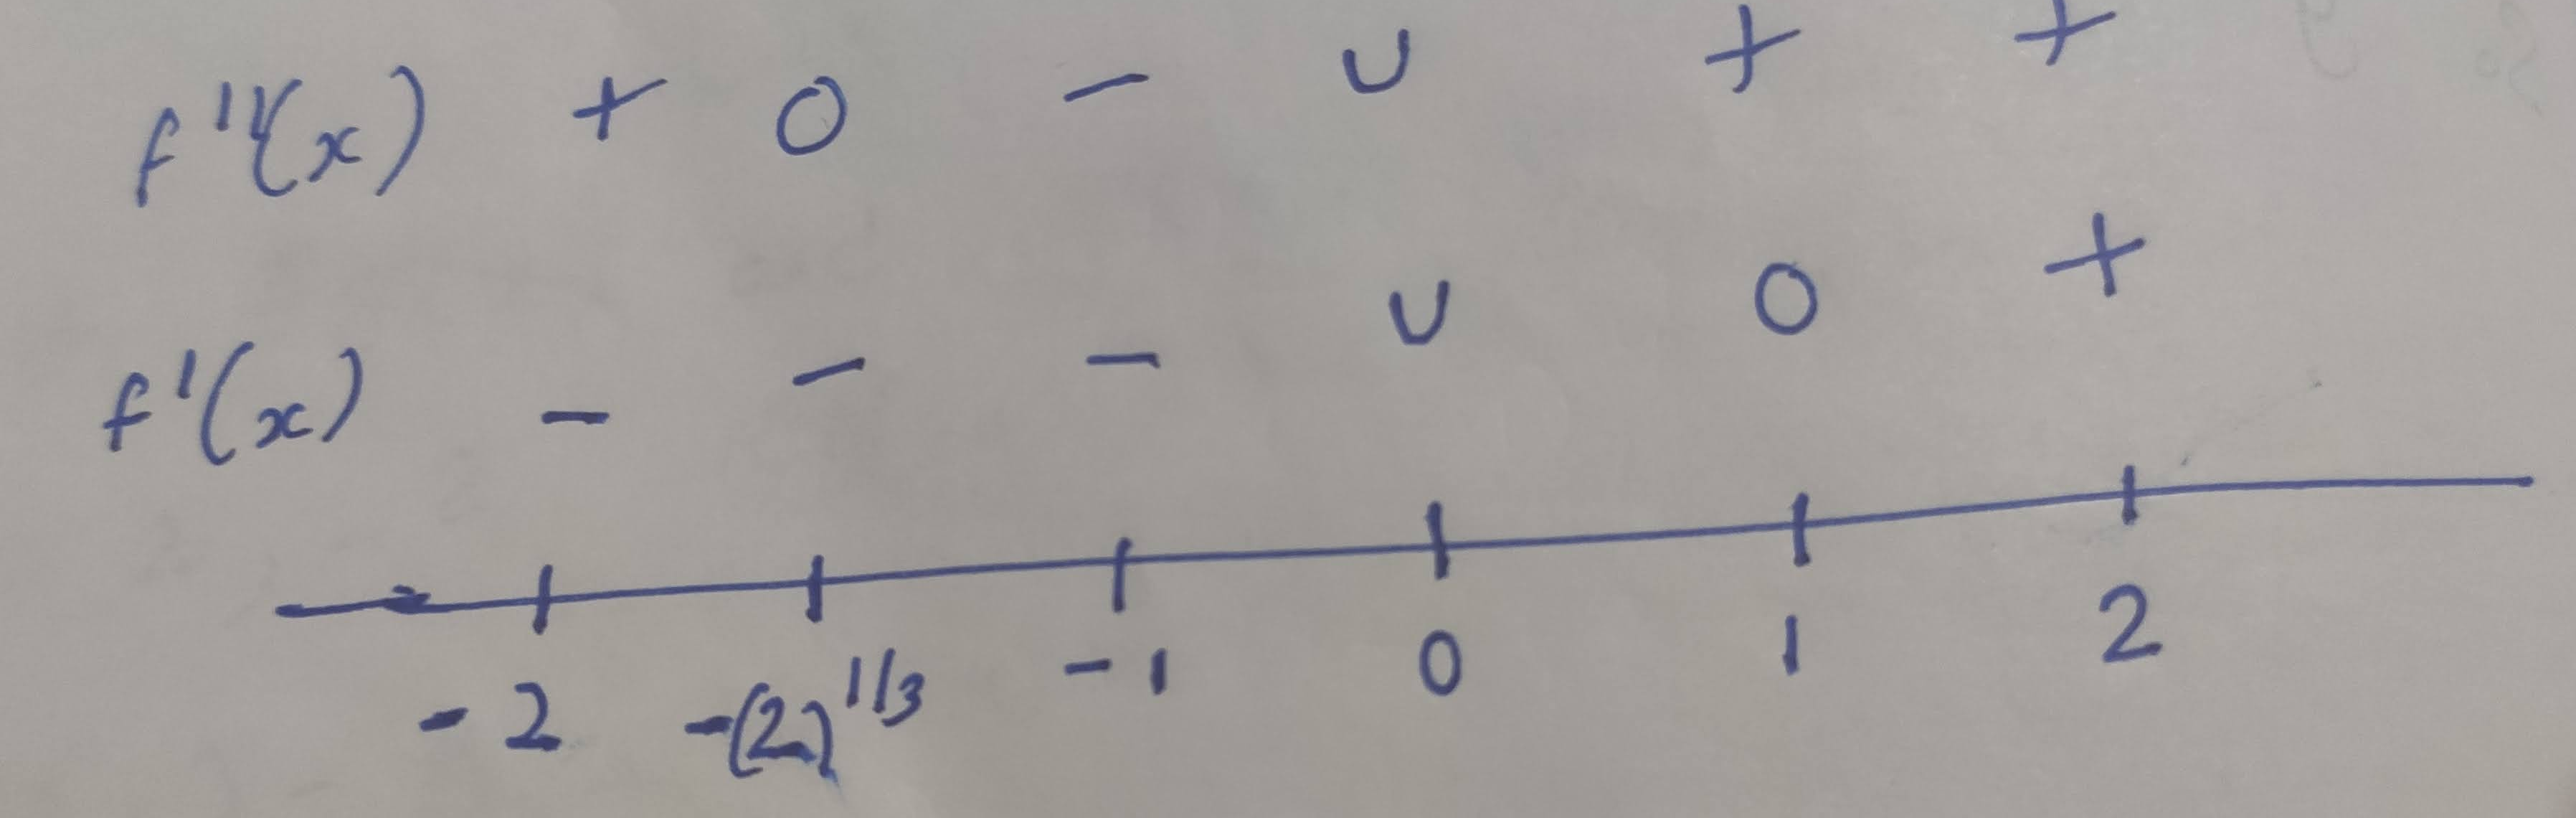 f''(x) + 0 - U + +
f'(x) - - - U 0 +
-2 -(2)^1/3 -1 0 1 2